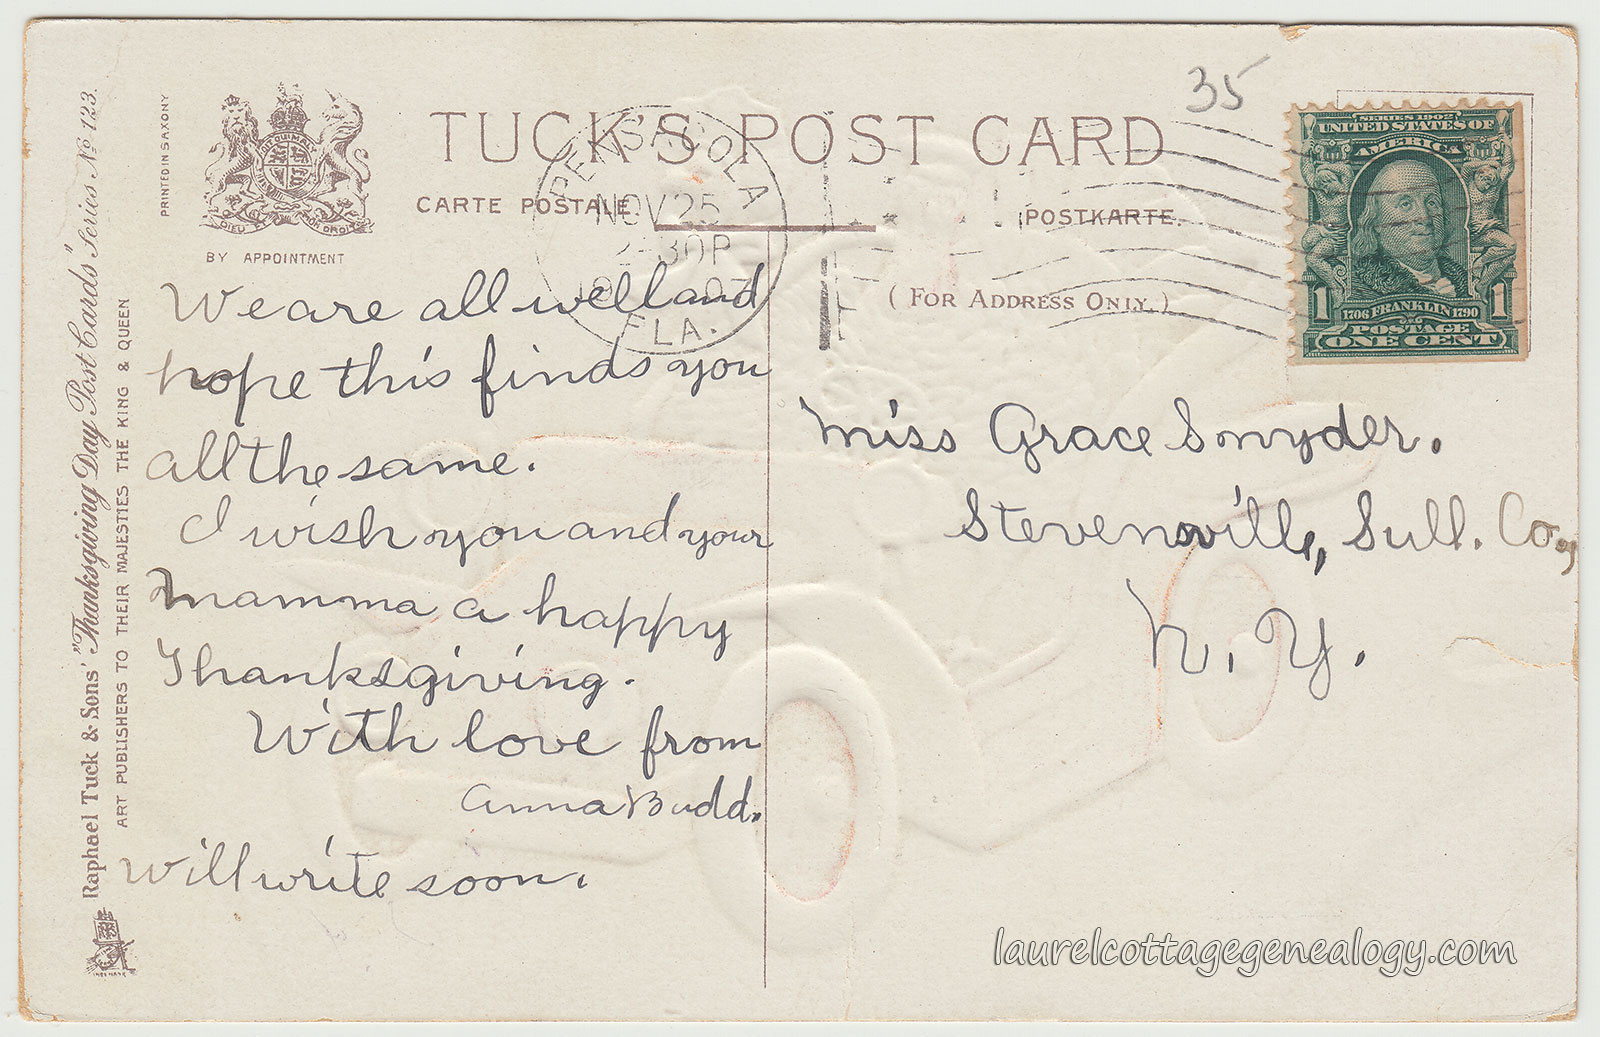 35
TUCK'S POST CARD
CARTE POSTALE
POSTKARTE.
(FOR ADDRESS ONLY.)
BY APPOINTMENT
DIEU ET MON DROIT
PRINTED IN SAXONY
Raphael Tuck & Sons' "Thanksgiving Day Post Cards" Series No. 123.
ART PUBLISHERS TO THEIR MAJESTIES THE KING & QUEEN
PENSACOLA
NOV 25
2-30P
FLA.
SERIES 1902
UNITED STATES OF
AMERICA
1706 FRANKLIN 1790
1 POSTAGE 1
ONE CENT
We are all well and
hope this finds you
all the same.
I wish you and your
Mamma a happy
Thanksgiving.
With love from
Anna Budd.
Will write soon.
Miss Grace Snyder.
Stevensville, Sull. Co.,
N. Y.
laurelcottagegenealogy.com